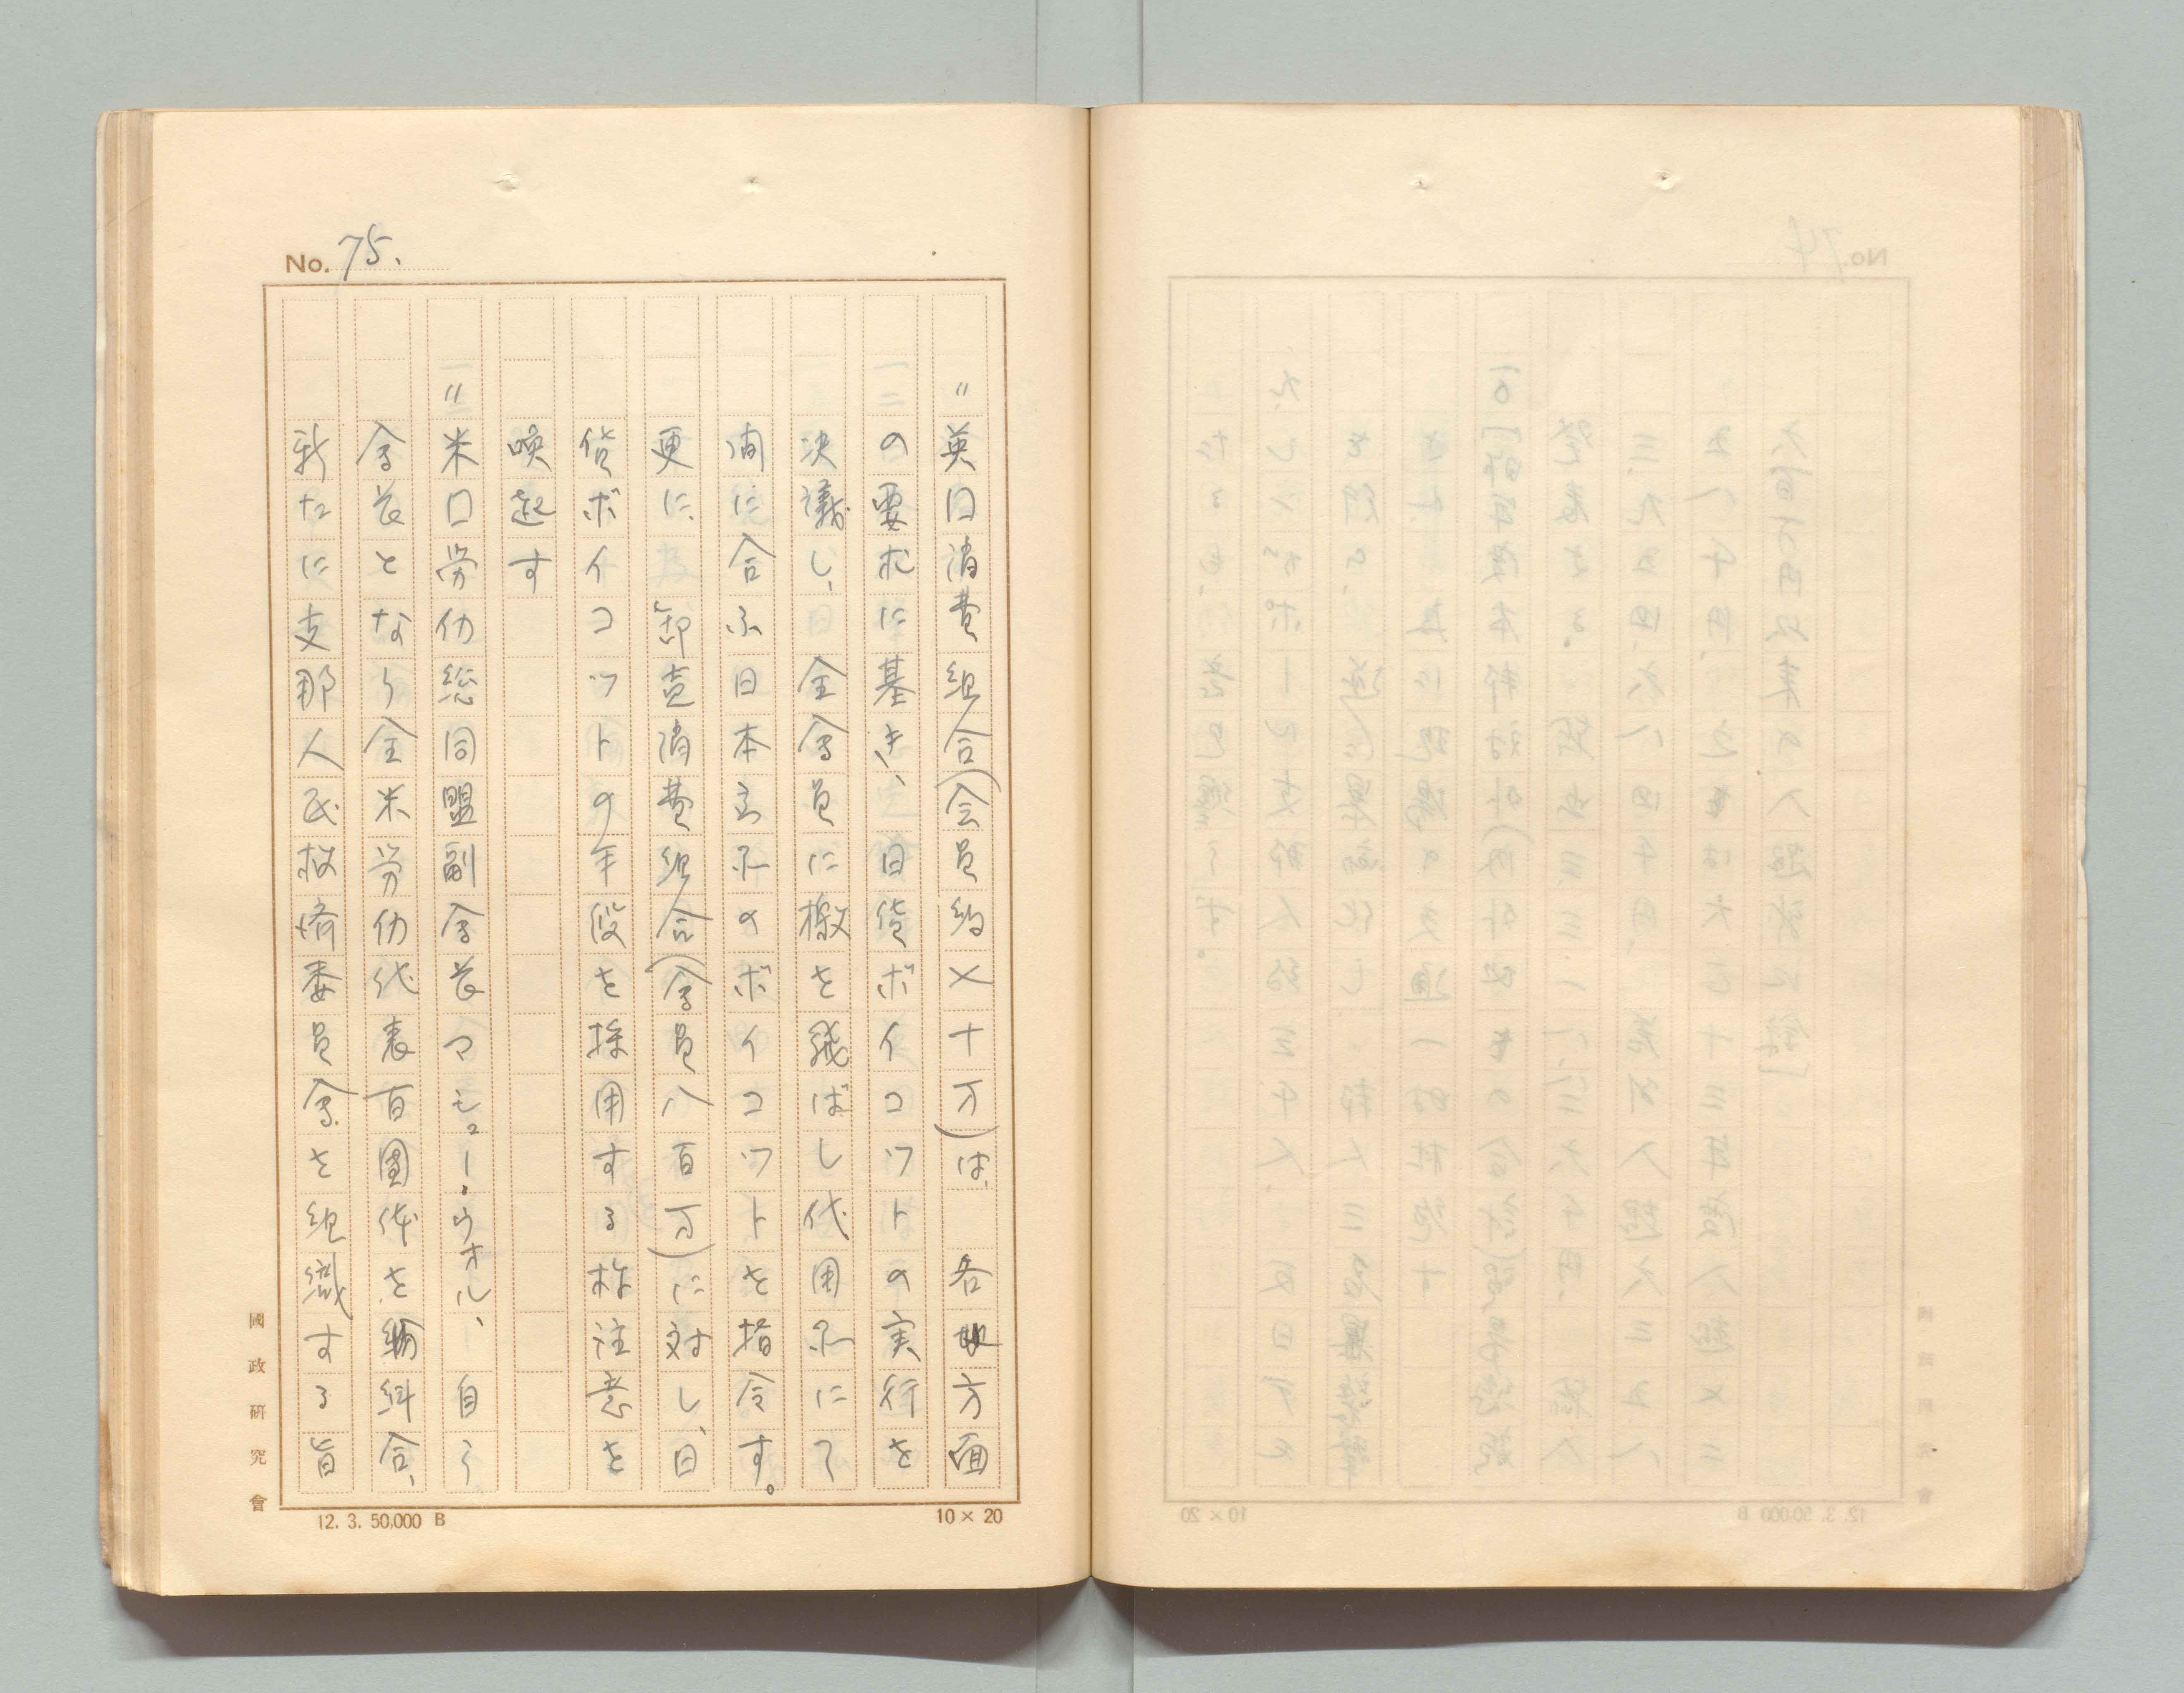 No. 75.
〃英口消費組合(会員約メ十万)は、 各地方面
の要求に基き、日貨ボイコットの実行を
決議し、全会員に檄を飛ばし代用品にて
間に合ふ日本商品のボイコットを指令す。
更に、卸売消費組合(会員八百万)に対し、日
貨ボイコットの手段を採用する様注意を
喚起す
〃米口労仂総同盟副会長マシュー・ウオル、自ら
会長となり全米労仂代表百團体を糾合、
新たに支那人民救済委員会を組織する旨
國政研究會
12. 3. 50,000 B
10×20